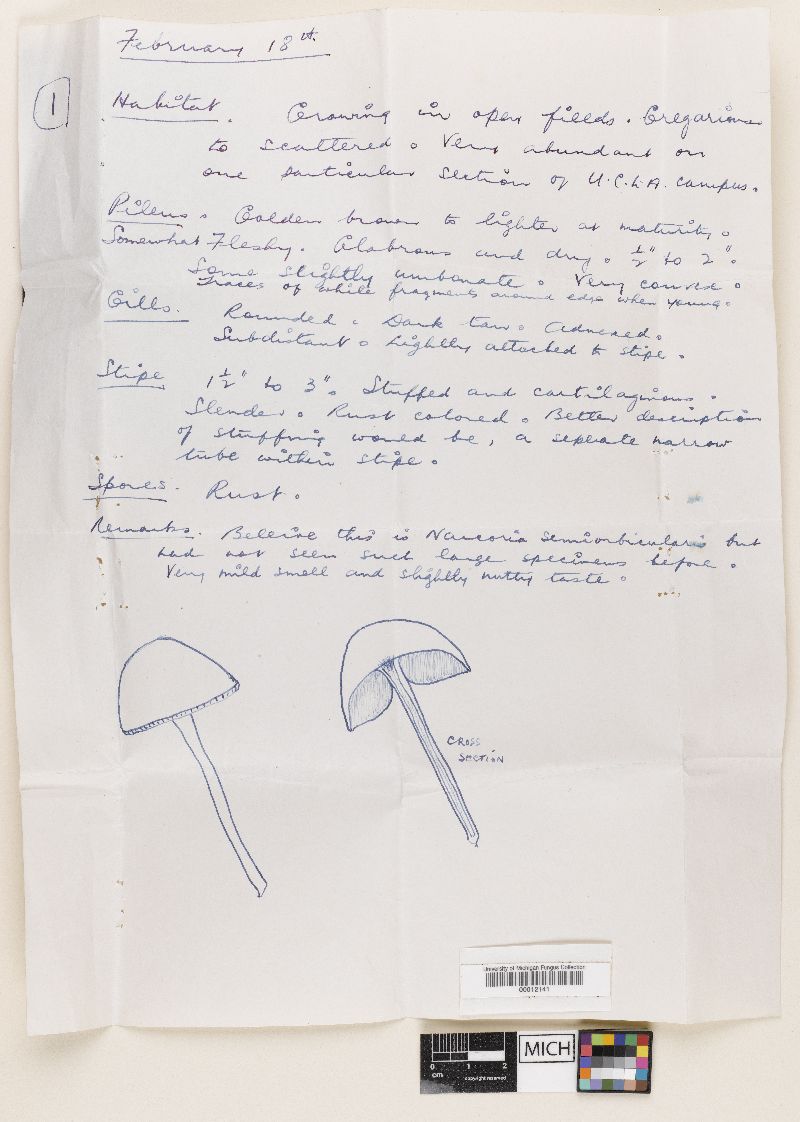 February 18th.
1
Habitat. Growing in open fields. Gregarious
to scattered. Very abundant on
one particular section of U.C.L.A. campus.
Pileus. Golden brown to lighter at maturity.
Somewhat Fleshy. Glabrous and dry. 1/2" to 2".
Some slightly umbonate. Very convex.
Traces of while fragments around edge when young.
Gills. Rounded. Dark tan. Adnexed.
Subdistant. Lightly attached to stipe.
Stipe 1 1/2" to 3". Stuffed and cartilaginous.
Slender. Rust colored. Better description
of stuffing would be, a seperate narrow
tube within stipe.
Spores. Rust.
Remarks. Beleive this is Naucoria Semiorbicularis but
had not seen such large specimens before.
Very mild smell and slightly nutty taste.
CROSS
SECTION
University of Michigan Fungus Collection
00012141
0 1 2
cm
copyright reserved
MICH